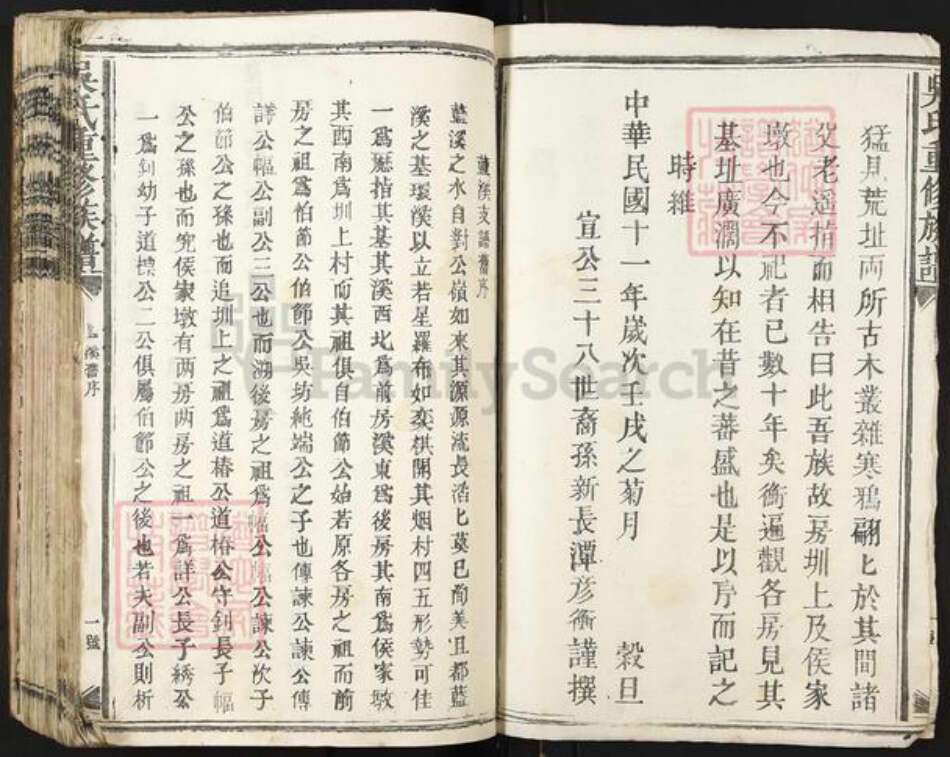 吳氏重修族譜
猛見荒址両所古木叢雜寒鴉翩〻於其間諸
父老遥指而相告曰此吾族故房圳上及侯家
墩也今不祀者已數十年矣衡遍觀各房見其
基址廣濶以知在昔之蕃盛也是以序而記之
時維
中華民國十一年歲次壬戌之菊月 穀旦
宣公三十八世裔孫新長潭彦衡謹撰
藍溪支譜舊序
藍溪之水自對公嶺如來其源源流長浩〻莫已而美且都藍
溪之基環溪以立若星羅布如奕棋開其烟村四五形勢可佳
一爲歷指其基其溪西北爲前房溪東爲後房其南爲侯家墩
其西南爲圳上村而其祖俱自伯節公始若原各房之祖而前
房之祖爲伯節公伯節公吳坊純端公之子也傳諫公諫公傳
詳公幅公副公三公也而溯後房之祖爲幅公幅公諫公次子
伯節公之孫也而追圳上之祖爲道椿公道椿公守釗長子幅
公之孫也而究侯家墩有两房两房之祖一爲詳公長子綉公
一爲釗幼子道標公二公俱屬伯節公之後也若夫副公則析
吳氏重修族譜
溪舊序
一號
FamilySearch